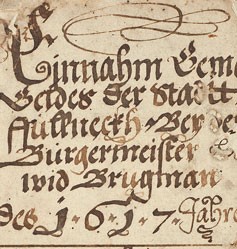 Einnahm Gem
Geldes der Stadtt
Füllneckh Bey de
Bürgermeister
wid Brugman
des 1617 Jahre